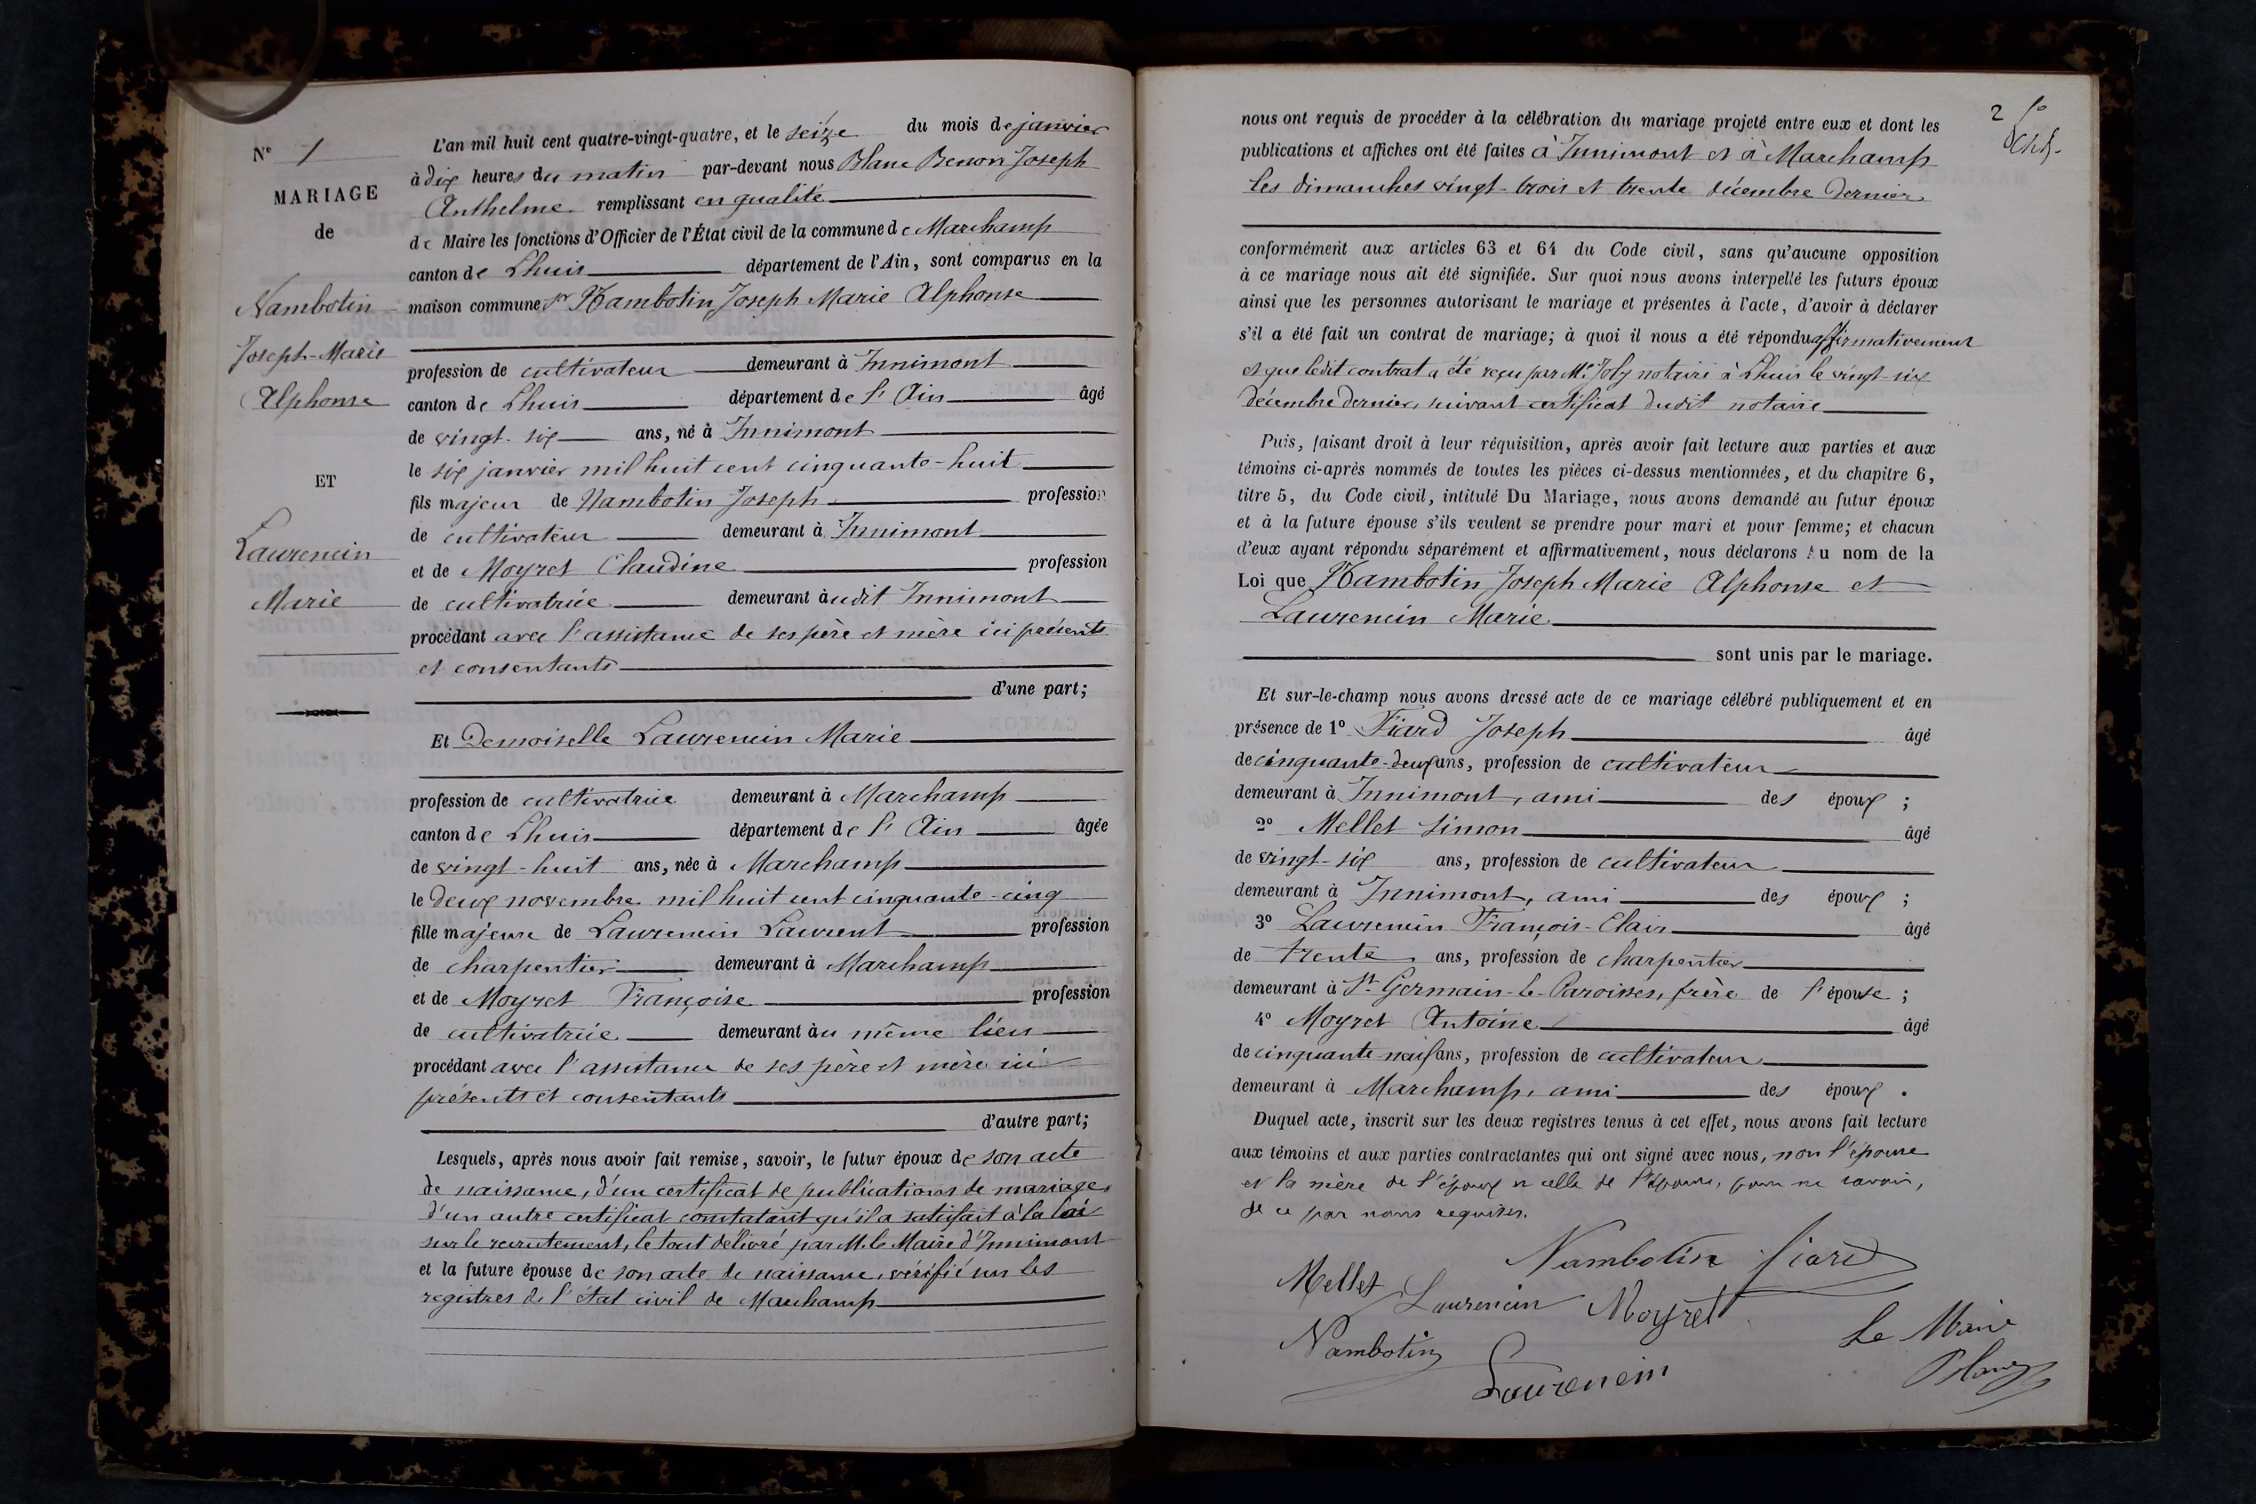 N° 1
MARIAGE
de
Nambotin
Joseph-Marie
Alphonse
ET
Laurencin
Marie
L'an mil huit cent quatre-vingt-quatre, et le seize du mois de janvier
à dix heures du matin par-devant nous Blanc Benon Joseph
Anthelme remplissant en qualité
de Maire les fonctions d'Officier de l'État civil de la commune de Marchamp
canton de Lhuis département de l'Ain, sont comparus en la
maison commune Sr Nambotin Joseph Marie Alphonse
profession de cultivateur demeurant à Innimont
canton de Lhuis département de l'Ain âgé
de vingt-six ans, né à Innimont
le six janvier mil huit cent cinquante-huit
fils majeur de Nambotin Joseph profession
de cultivateur demeurant à Innimont
et de Moyret Claudine profession
de cultivatrice demeurant audit Innimont
procédant avec l'assistance de ses père et mère ici présents
et consentants
d'une part;
Et Demoiselle Laurencin Marie
profession de cultivatrice demeurant à Marchamp
canton de Lhuis département de l'Ain âgée
de vingt-huit ans, née à Marchamp
le deux novembre mil huit cent cinquante-cinq
fille majeure de Laurencin Laurent profession
de charpentier demeurant à Marchamp
et de Moyret Françoise profession
de cultivatrice demeurant au même lieu
procédant avec l'assistance de ses père et mère ici
présents et consentants
d'autre part;
Lesquels, après nous avoir fait remise, savoir, le futur époux de son acte
de naissance, d'un certificat de publications de mariage,
d'un autre certificat constatant qu'il a satisfait à la loi
sur le recrutement, le tout délivré par M. le Maire d'Innimont
et la future épouse de son acte de naissance, vérifié sur les
registres de l'état civil de Marchamp
2
nous ont requis de procéder à la célébration du mariage projeté entre eux et dont les
publications et affiches ont été faites à Innimont et à Marchamp
les dimanches vingt-trois et trente décembre dernier
conformément aux articles 63 et 64 du Code civil, sans qu'aucune opposition
à ce mariage nous ait été signifiée. Sur quoi nous avons interpellé les futurs époux
ainsi que les personnes autorisant le mariage et présentes à l'acte, d'avoir à déclarer
s'il a été fait un contrat de mariage; à quoi il nous a été répondu affirmativement
et que ledit contrat a été reçu par Me Joly notaire à Lhuis le vingt-six
décembre dernier, suivant certificat dudit notaire
Puis, faisant droit à leur réquisition, après avoir fait lecture aux parties et aux
témoins ci-après nommés de toutes les pièces ci-dessus mentionnées, et du chapitre 6,
titre 5, du Code civil, intitulé Du Mariage, nous avons demandé au futur époux
et à la future épouse s'ils veulent se prendre pour mari et pour femme; et chacun
d'eux ayant répondu séparément et affirmativement, nous déclarons Au nom de la
Loi que Nambotin Joseph Marie Alphonse et
Laurencin Marie
sont unis par le mariage.
Et sur-le-champ nous avons dressé acte de ce mariage célébré publiquement et en
présence de 1° Fiard Joseph âgé
de cinquante-deux ans, profession de cultivateur
demeurant à Innimont, ami des époux ;
2° Mellet Simon âgé
de vingt-six ans, profession de cultivateur
demeurant à Innimont, ami des époux ;
3° Laurencin François-Clair âgé
de trente ans, profession de charpentier
demeurant à St Germain-le-Paroisses, frère de l'épouse ;
4° Moyret Antoine âgé
de cinquante-neuf ans, profession de cultivateur
demeurant à Marchamp, ami des époux .
Duquel acte, inscrit sur les deux registres tenus à cet effet, nous avons fait lecture
aux témoins et aux parties contractantes qui ont signé avec nous, non l'épouse
et la mère de l'époux ni celle de l'épouse, pour ne savoir,
de ce par nous requises.
Nambotin Fiard
Mellet Laurencin Moyret
Nambotin Le Maire
Laurencin Blanc